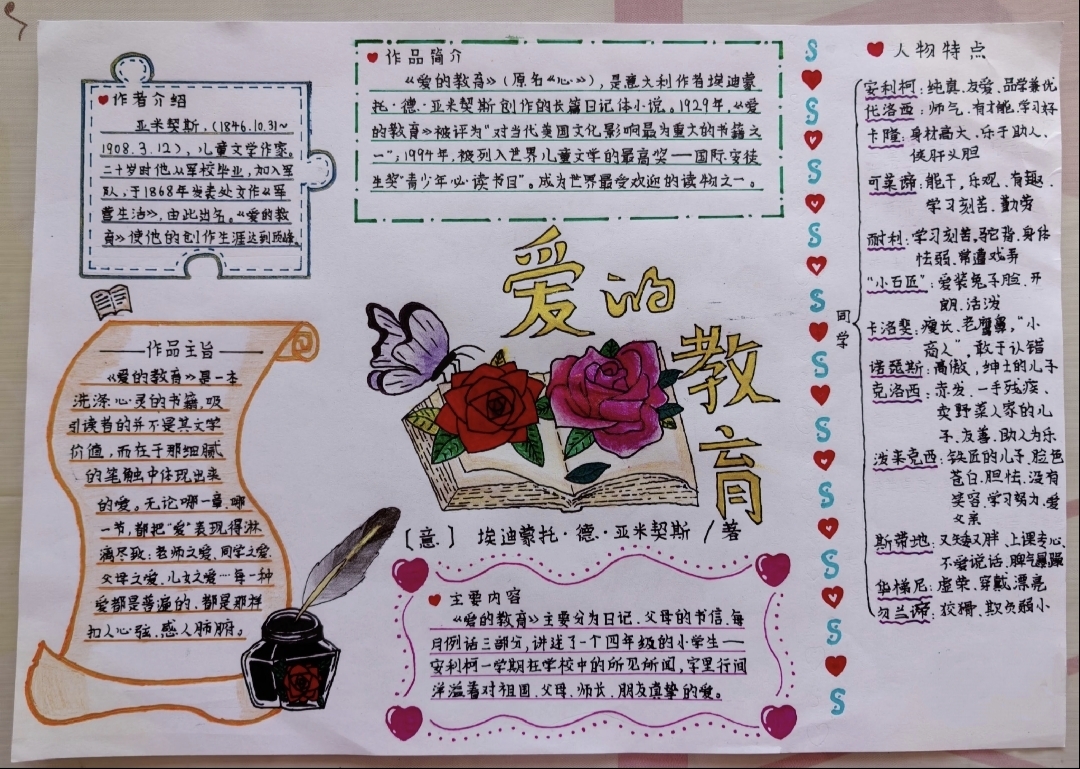 作者介绍
亚米契斯，(1846.10.31~
1908.3.12)，儿童文学作家。
二十岁时他从军校毕业，加入军
队，于1868年发表处女作《军
营生活》，由此出名。《爱的教
育》使他的创作生涯达到顶峰。
作品简介
《爱的教育》（原名《心》），是意大利作者埃迪蒙
托·德·亚米契斯创作的长篇日记体小说。1929年，《爱
的教育》被评为"对当代美国文化影响最为重大的书籍之
一"；1994年，被列入世界儿童文学的最高奖——国际安徒
生奖"青少年必读书目"。成为世界最受欢迎的读物之一。
爱的
教
育
〔意〕 埃迪蒙托·德·亚米契斯 / 著
作品主旨
《爱的教育》是一本
洗涤心灵的书籍，吸
引读者的并不是其文学
价值，而在于那细腻
的笔触中体现出来
的爱。无论哪一章，哪
一节，都把"爱"表现得淋
漓尽致：老师之爱、同学之爱、
父母之爱、儿女之爱…每一种
爱都是普遍的，都是那样
扣人心弦，感人肺腑。
主要内容
《爱的教育》主要分为日记、父母的书信、每
月例话三部分，讲述了一个四年级的小学生——
安利柯一学期在学校中的所见所闻，字里行间
洋溢着对祖国、父母、师长、朋友真挚的爱。
人物特点
同学
安利柯：纯真、友爱、品学兼优
代洛西：帅气、有才能、学习好
卡隆：身材高大、乐于助人、
侠肝义胆
可莱谛：能干，乐观、有趣、
学习刻苦、勤劳
耐利：学习刻苦，驼背、身体
怯弱、常遭戏弄
"小石匠"：爱装兔子脸、开
朗、活泼
卡洛斐：瘦长、老鹰鼻，"小
商人"，敢于认错
诺琵斯：高傲，绅士的儿子
克洛西：赤发、一手残疾、
卖野菜人家的儿
子、友善、助人为乐
泼来克西：铁匠的儿子、脸色
苍白、胆怯、没有
笑容、学习努力、爱
父亲
斯带地：又矮又胖、上课专心、
不爱说话、脾气暴躁
华梯尼：虚荣、穿戴漂亮
勿兰谛：狡猾、欺负弱小